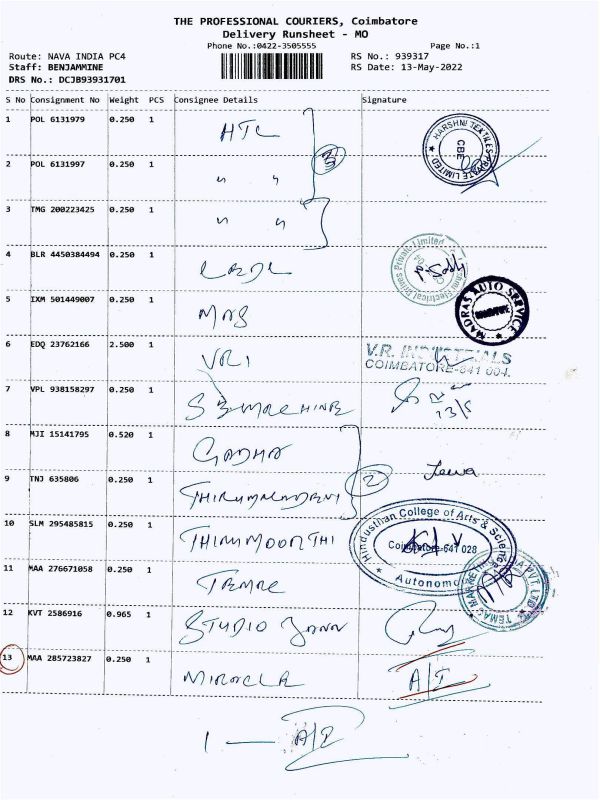 THE PROFESSIONAL COURIERS, Coimbatore
Delivery Runsheet - MO
Phone No.:0422-3505555 Page No.:1
Route: NAVA INDIA PC4 RS No.: 939317
Staff: BENJAMMINE RS Date: 13-May-2022
DRS No.: DCJB93931701
S No Consignment No Weight PCS Consignee Details Signature
1 POL 6131979 0.250 1 HTL
HARSHNI TEXTILES PRIVATE LIMITED ★ CBE
3
2 POL 6131997 0.250 1 " "
3 TMG 200223425 0.250 1 " "
4 BLR 4450384494 0.250 1
Electrical Drives Private Limited
5 IXM 501449007 0.250 1 MAS
MADRAS AUTO SERVICE ★
6 EDQ 23762166 2.500 1 VRI
V.R. INDUSTRIALS
COIMBATORE-641 004.
7 VPL 938158297 0.250 1 SB MACHINE
13/5
8 MJI 15141795 0.520 1
2
9 TNJ 635806 0.250 1
10 SLM 295485815 0.250 1 THIRUMOORTHI
Hindusthan College of Arts & Science
Coimbatore-641 028
★ Autonomous
11 MAA 276671058 0.250 1
12 KVT 2586916 0.965 1 STUDIO
13 MAA 285723827 0.250 1 MIRACLE A/I
1 — A/I